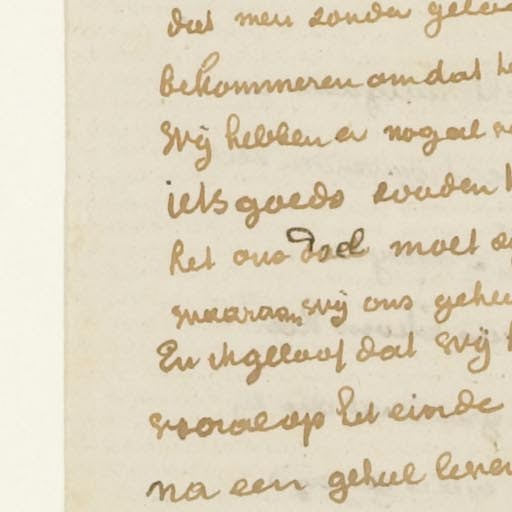 dat men zonder
bekommeren omdat
Wij hebben er nogal
iets goeds zouden
het ons doel moet
waaraan wij ons
En ik geloof dat wij
vooral op het einde
na een geheel